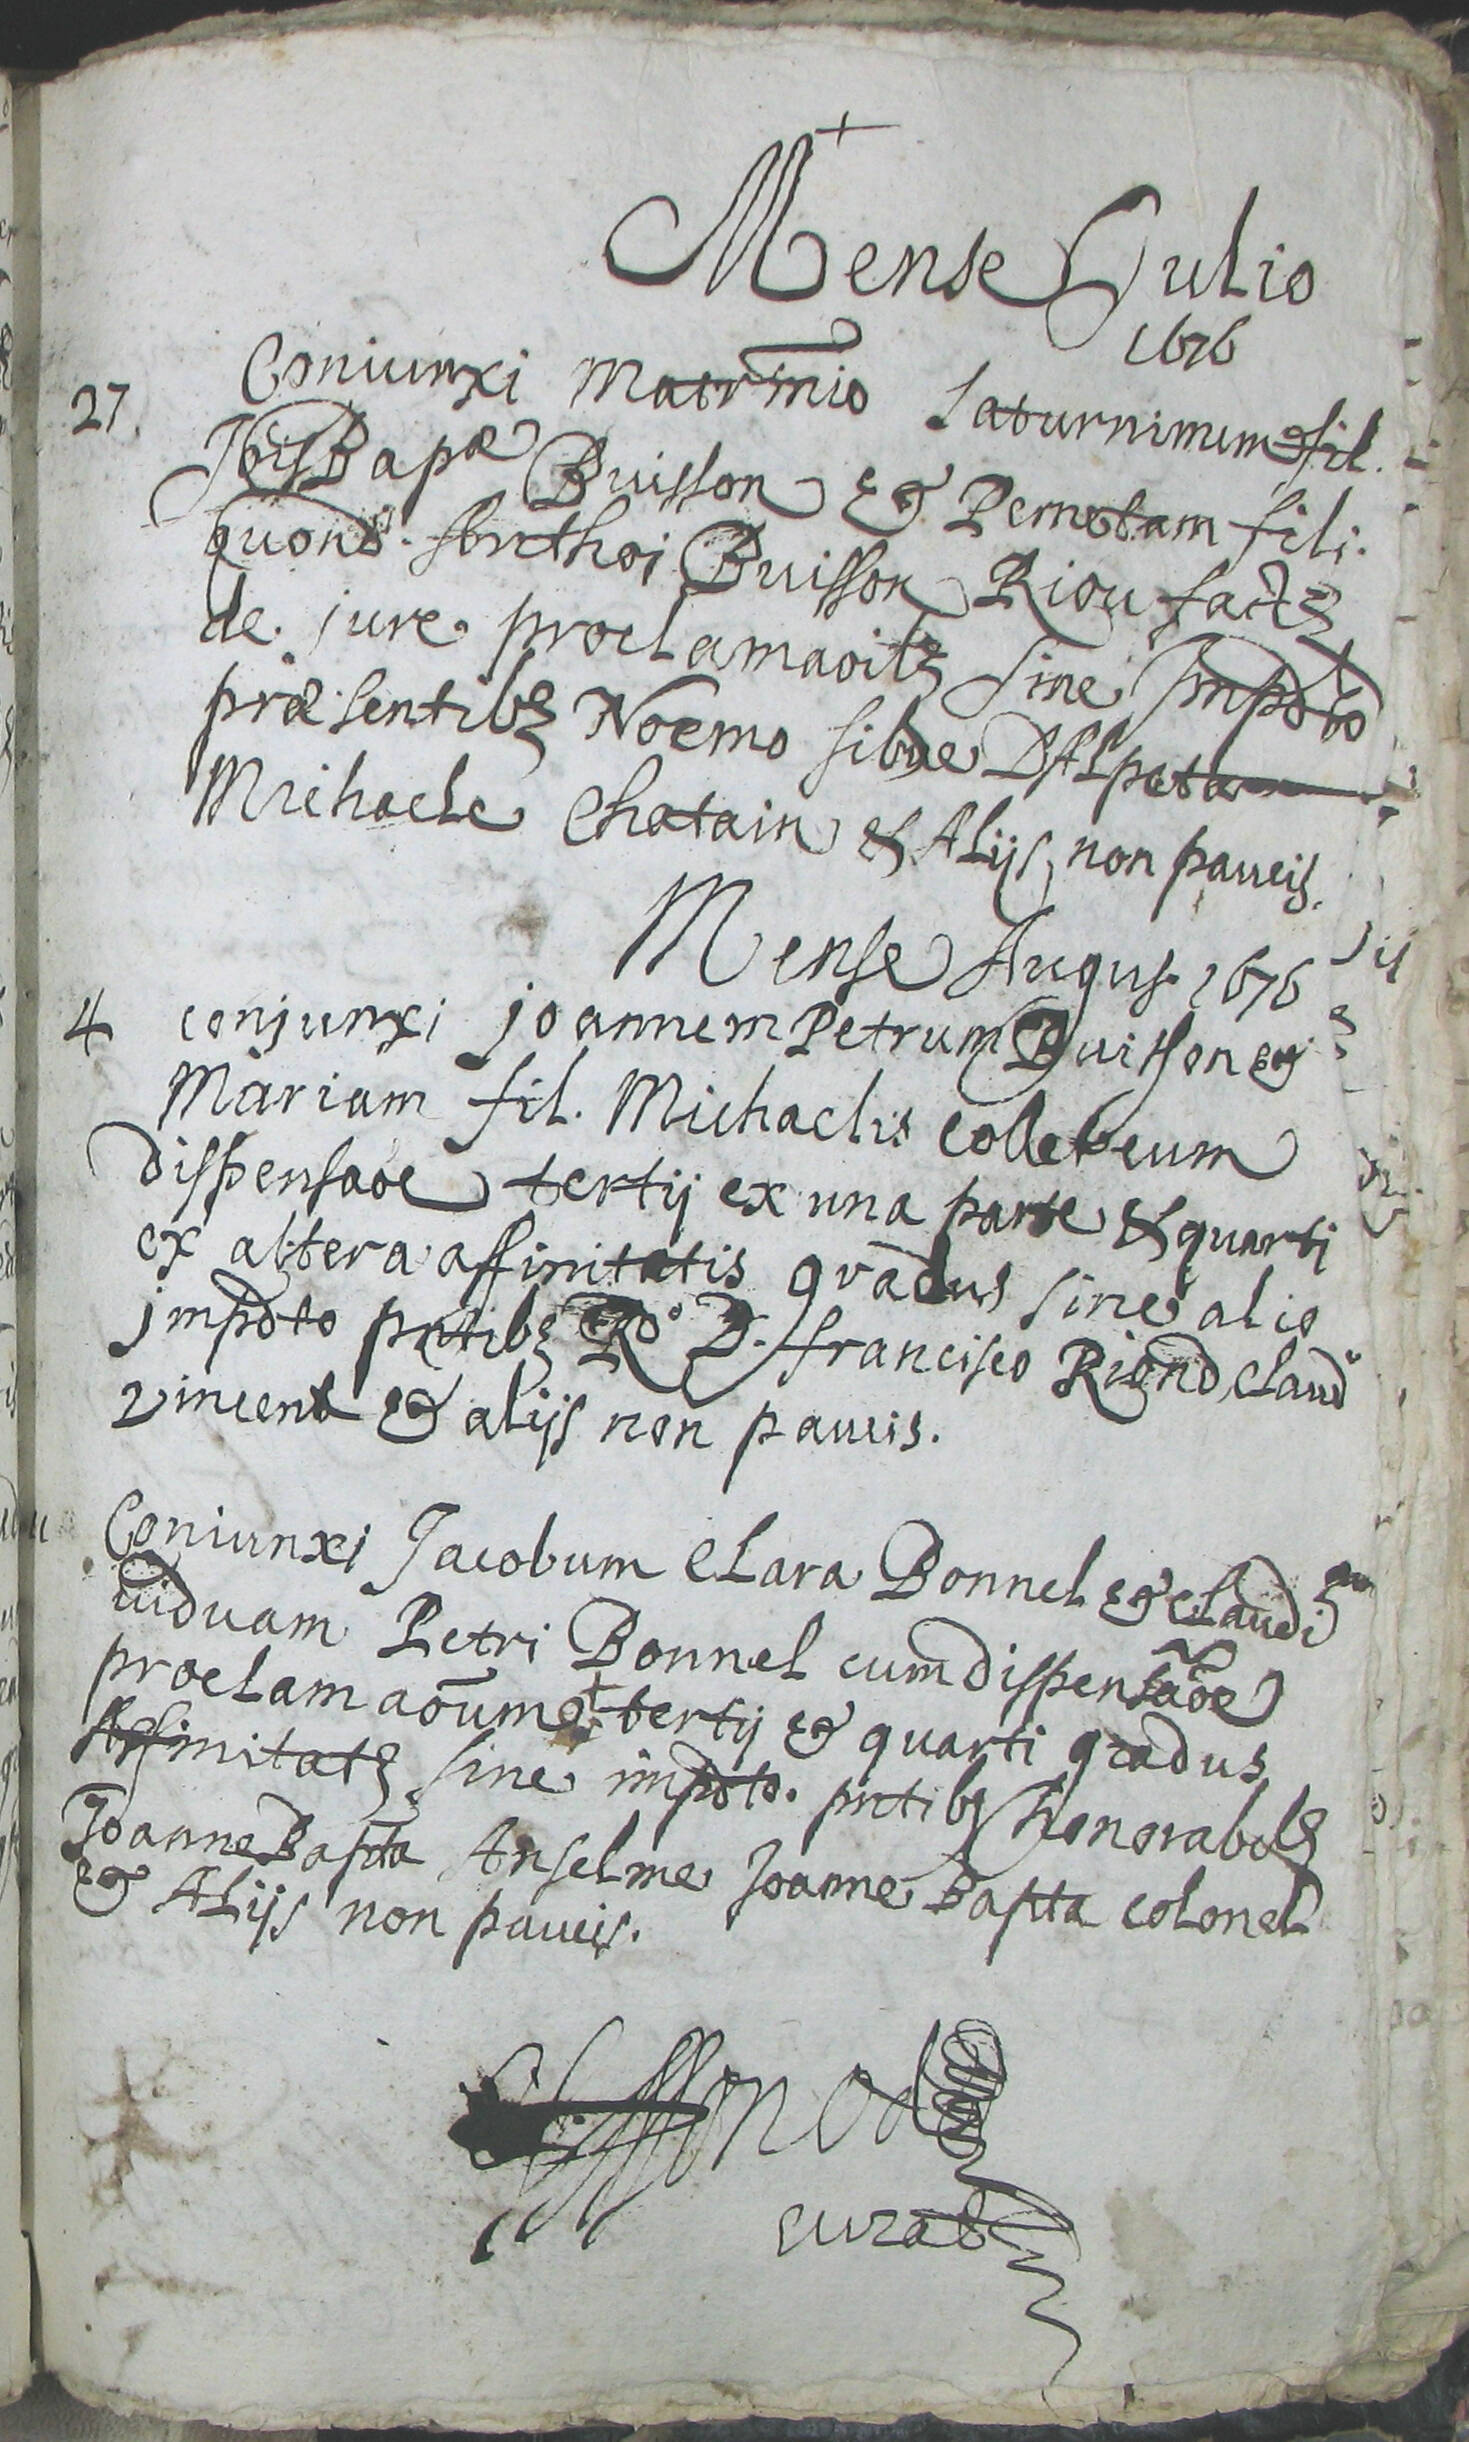 Mense Julio
1676
27. Coniunxi Matrmio Saturninum fil.
Jois Bapæ Buisson & Pernetam fili.
quond. Anthoi Buisson Riou factz
de jure proclamaoibz sine Impdto
præsentibz Noemo
Michaele Chatain & Alijs non paucis.
Mense Augus. 1676
4 conjunxi joannem Petrum Buisson &
Mariam fil. Michaelis
dispensaoe tertij ex una parte & quarti
ex altera affinitatis gradus sine alio
jmpdto pntibz Rdo D. francisco Riond Claud
vincent & alijs non paucis.
Coniunxi Jacobum Clara Bonnel & Claudi
viduam Petri Bonnel cum dispensaoe
proclamaoum & tertij & quarti gradus
Affinitatz sine impdto. pntibz honorabilz
Joanne Bapta Anselme Joanne Bapta colonel
& Alijs non paucis.
curat